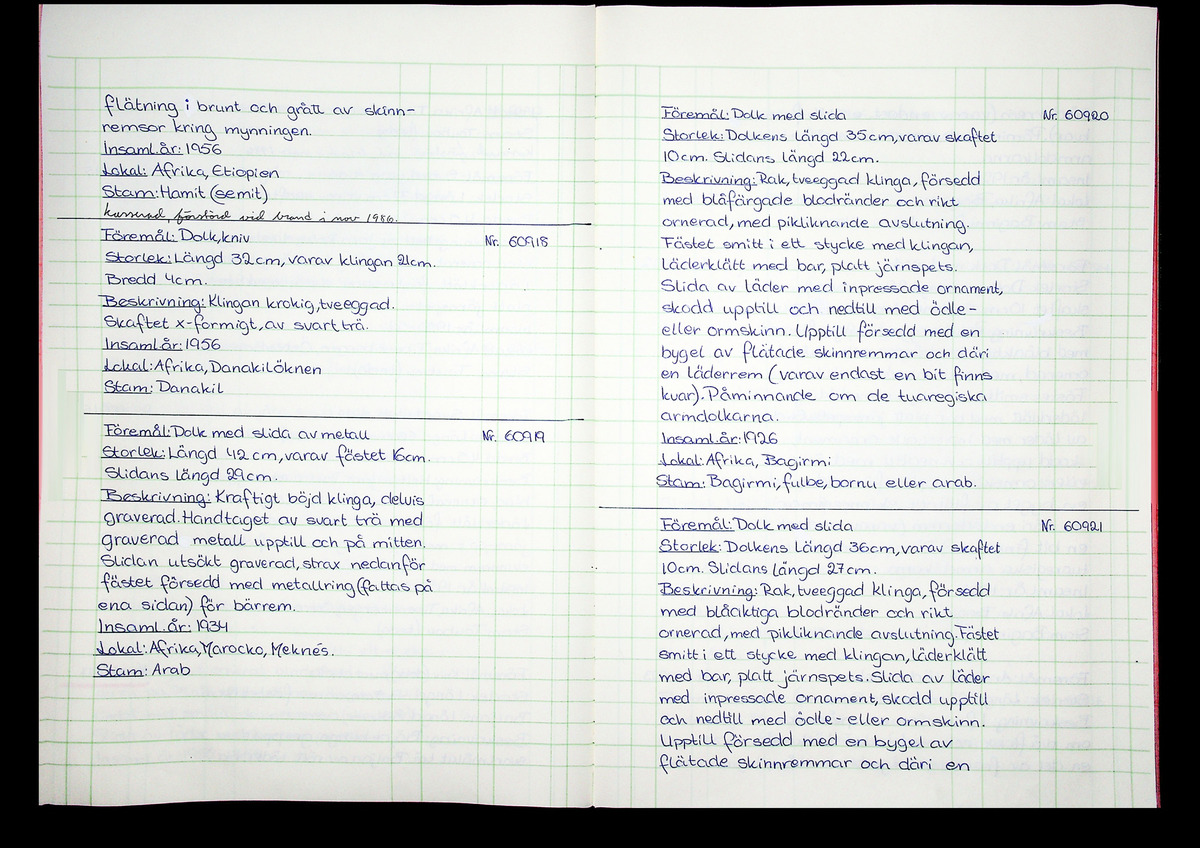 flätning i brunt och grått av skinn-
remsor kring mynningen.
Insaml.år: 1956
Lokal: Afrika, Etiopien
Stam: Hamit (semit)
kasserad, förstörd vid brand i nov 1986.
Föremål: Dolk, kniv Nr. 60918
Storlek: Längd 32 cm, varav klingan 21 cm.
Bredd 4 cm.
Beskrivning: Klingan krokig, tveeggad.
Skaftet x-formigt, av svart trä.
Insaml.år: 1956
Lokal: Afrika, Danakilöknen
Stam: Danakil
Föremål: Dolk med slida av metall Nr. 60919
Storlek: Längd 42 cm, varav fästet 16 cm.
Slidans längd 29 cm.
Beskrivning: Kraftigt böjd klinga, delvis
graverad. Handtaget av svart trä med
graverad metall upptill och på mitten.
Slidan utsökt graverad, strax nedanför
fästet försedd med metallring (fattas på
ena sidan) för bärrem.
Insaml.år: 1934
Lokal: Afrika, Marocko, Meknés.
Stam: Arab
Föremål: Dolk med slida Nr. 60920
Storlek: Dolkens längd 35 cm, varav skaftet
10 cm. Slidans längd 22 cm.
Beskrivning: Rak, tveeggad klinga, försedd
med blåfärgade blodränder och rikt
ornerad, med pikliknande avslutning.
Fästet smitt i ett stycke med klingan,
läderklätt med bar, platt järnspets.
Slida av läder med inpressade ornament,
skodd upptill och nedtill med ödle-
eller ormskinn. Upptill försedd med en
bygel av flätade skinnremmar och däri
en läderrem (varav endast en bit finns
kvar). Påminnande om de tuaregiska
armdolkarna.
Insaml.år: 1926
Lokal: Afrika, Bagirmi
Stam: Bagirmi, fulbe, bornu eller arab.
Föremål: Dolk med slida Nr. 60921
Storlek: Dolkens längd 36 cm, varav skaftet
10 cm. Slidans längd 27 cm.
Beskrivning: Rak, tveeggad klinga, försedd
med blåaktiga blodränder och rikt
ornerad, med pikliknande avslutning. Fästet
smitt i ett stycke med klingan, läderklätt
med bar, platt järnspets. Slida av läder
med inpressade ornament, skodd upptill
och nedtill med ödle- eller ormskinn.
Upptill försedd med en bygel av
flätade skinnremmar och däri en